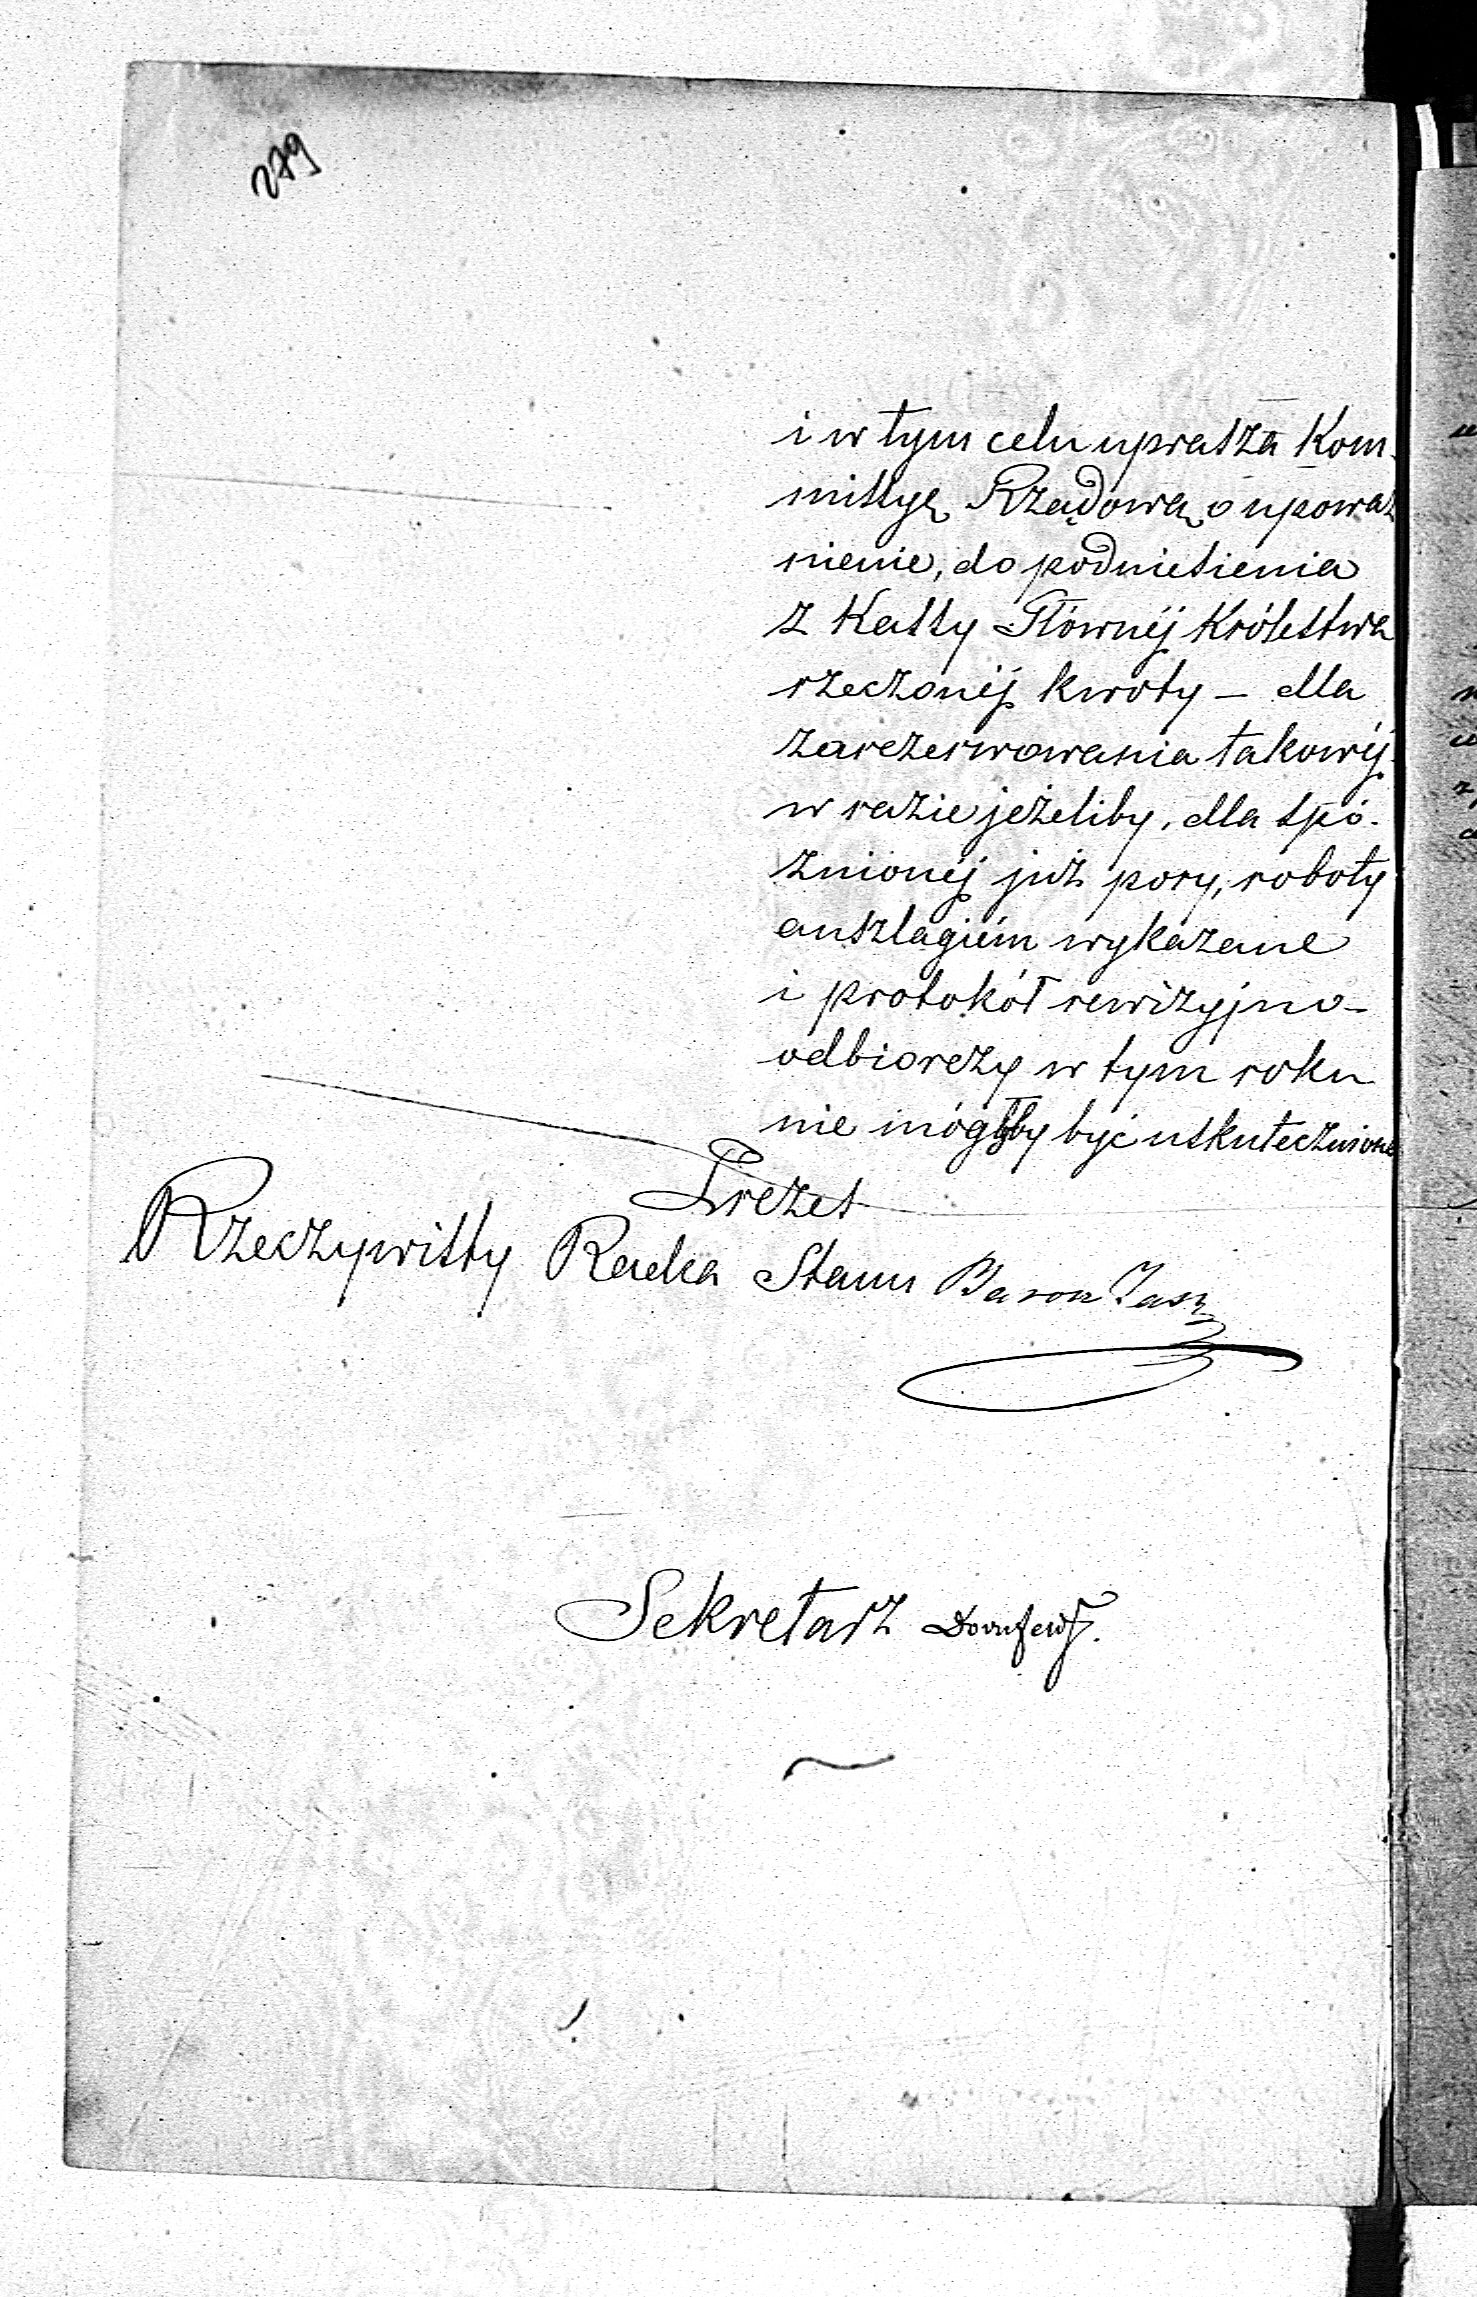 279
i w tym celu uprasza Kom-
missyę Rządową o upoważ
nienie, do podniesienia
z Kassy Głównéj Królestwa
rzeczonéj kwoty – dla
zarezerwowania takowéj
w razie jeżeliby, dla spó-
źnionéj już pory, roboty
anszlagiem wykazane
i protokół rewizyjno-
odbiorczy w tym roku
nie mógłby być uskutecznione
Prezes
Rzeczywisty Radca Stanu Baron
Sekretarz